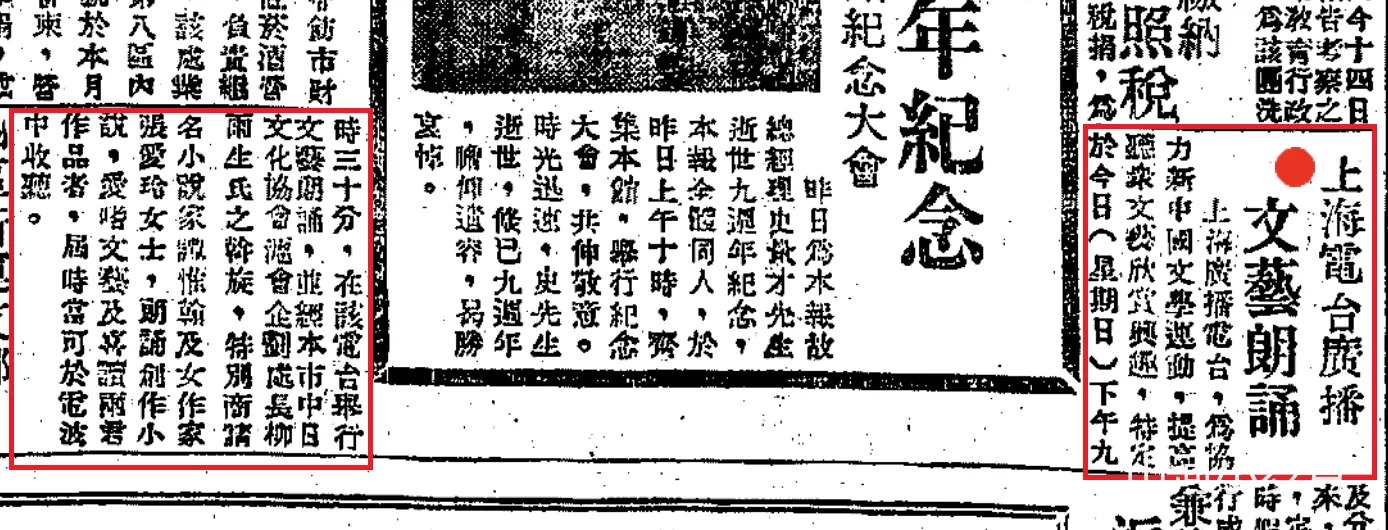 今十四日
告考察之
敎育行政
爲該團洗
繳納
照稅
稅捐，爲
上海電台廣播
文藝朗誦
上海廣播電台，爲協
力新中國文學運動，提高
聽衆文藝欣賞興趣，特定
於今日（星期日）下午九
時三十分，在該電台舉行
文藝朗誦，並經本市中日
文化協會滬會企劃處長柳
雨生氏之斡旋，特別商請
名小說家譚惟翰及女作家
張愛玲女士，朗誦創作小
說，愛嗜文藝及喜讀兩君
作品者，屆時當可於電波
中收聽。
年紀念
紀念大會
昨日爲本報故
總經理史量才先生
逝世九週年紀念，
本報全體同人，於
昨日上午十時，齊
集本館，舉行紀念
大會，共伸敬意。
時光迅速，史先生
逝世，倏已九週年
，瞻仰遺容，曷勝
哀悼。
飭市財
菸酒督
負責組
該處業
八區內
於本月
東，
及
來